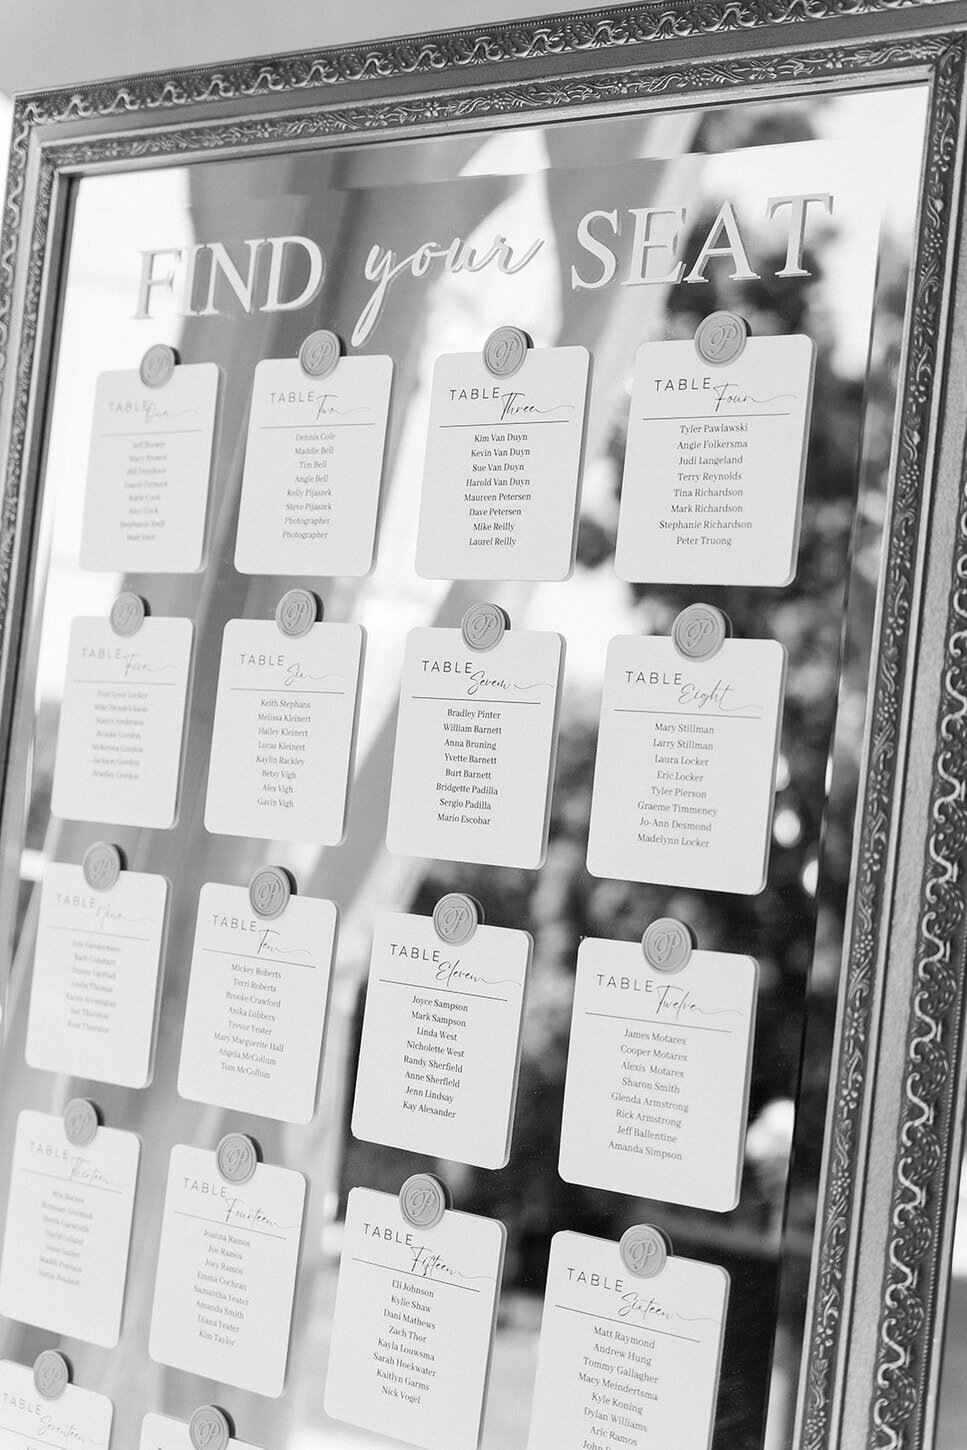 FIND your SEAT
TABLE One
Jeff Brewer
Mary Brewer
Katie Cook
Amy Cook
TABLE Two
Dennis Cole
Maddie Bell
Tim Bell
Angie Bell
Kelly Pijaszek
Steve Pijaszek
Photographer
Photographer
TABLE Three
Kim Van Duyn
Kevin Van Duyn
Sue Van Duyn
Harold Van Duyn
Maureen Petersen
Dave Petersen
Mike Reilly
Laurel Reilly
TABLE Four
Tyler Pawlawski
Angie Folkersma
Judi Langeland
Terry Reynolds
Tina Richardson
Mark Richardson
Stephanie Richardson
Peter Truong
TABLE Five
Toni Lynn Locker
Mike Hendrickson
Nancy Anderson
Brooke Gordon
McKenna Gordon
Jackson Gordon
Bradley Gordon
TABLE Six
Keith Stephans
Melissa Kleinert
Hailey Kleinert
Lucas Kleinert
Kaylin Rackley
Betsy Vigh
Alex Vigh
Gavin Vigh
TABLE Seven
Bradley Pinter
William Barnett
Anna Bruning
Yvette Barnett
Burt Barnett
Bridgette Padilla
Sergio Padilla
Mario Escobar
TABLE Eight
Mary Stillman
Larry Stillman
Laura Locker
Eric Locker
Tyler Pierson
Graeme Timmeney
Jo-Ann Desmond
Madelynn Locker
TABLE Nine
Barb Constant
Leslie Thomas
Ian Thornton
Thornton
TABLE Ten
Mickey Roberts
Terri Roberts
Brooke Crawford
Anika Lubbers
Trevor Yeater
Mary Marguerite Hall
Angela McCollum
Tom McCollum
TABLE Eleven
Joyce Sampson
Mark Sampson
Linda West
Nicholette West
Randy Sherfield
Anne Sherfield
Jenn Lindsay
Kay Alexander
TABLE Twelve
James Motarex
Cooper Motarex
Alexis Motarex
Sharon Smith
Glenda Armstrong
Rick Armstrong
Jeff Ballentine
Amanda Simpson
TABLE Thirteen
Mia Barnes
David
TABLE Fourteen
Joanna Ramos
Joe Ramos
Joey Ramos
Emma Cochran
Samantha Yeater
Amanda Smith
Diana Yeater
Kim Taylor
TABLE Fifteen
Eli Johnson
Kylie Shaw
Dani Mathews
Zach Thor
Kayla Louwsma
Sarah Hoekwater
Kaitlyn Garms
Nick Vogel
TABLE Sixteen
Matt Raymond
Andrew Hung
Tommy Gallagher
Macy Meindertsma
Kyle Koning
Dylan Williams
Aric Ramos
John
TABLE Seventeen